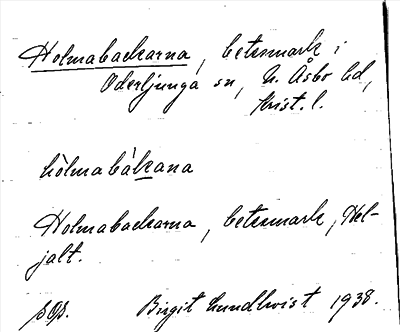 Holmabackarna, betesmark i
Oderljunga sn, N. Åsbo hd,
Krist. l.
hòlmabàkana
Holmabackarna, betesmark, Hel-
jalt.
Birgit Lundkvist 1938.